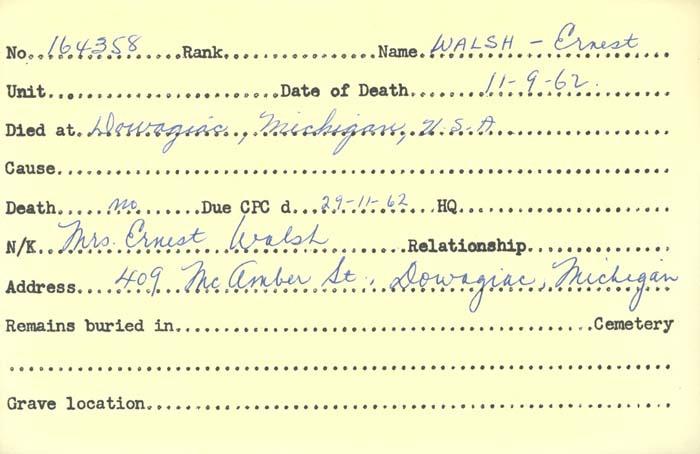 No. 164358 Rank Name WALSH - Ernest
Unit Date of Death 11-9-62.
Died at Dowagiac, Michigan, U.S.A
Cause
Death no Due CPC d 29-11-62 HQ
N/K Mrs. Ernest Walsh Relationship
Address 409 McAmber St., Dowagiac, Michigan
Remains buried in Cemetery
Grave location